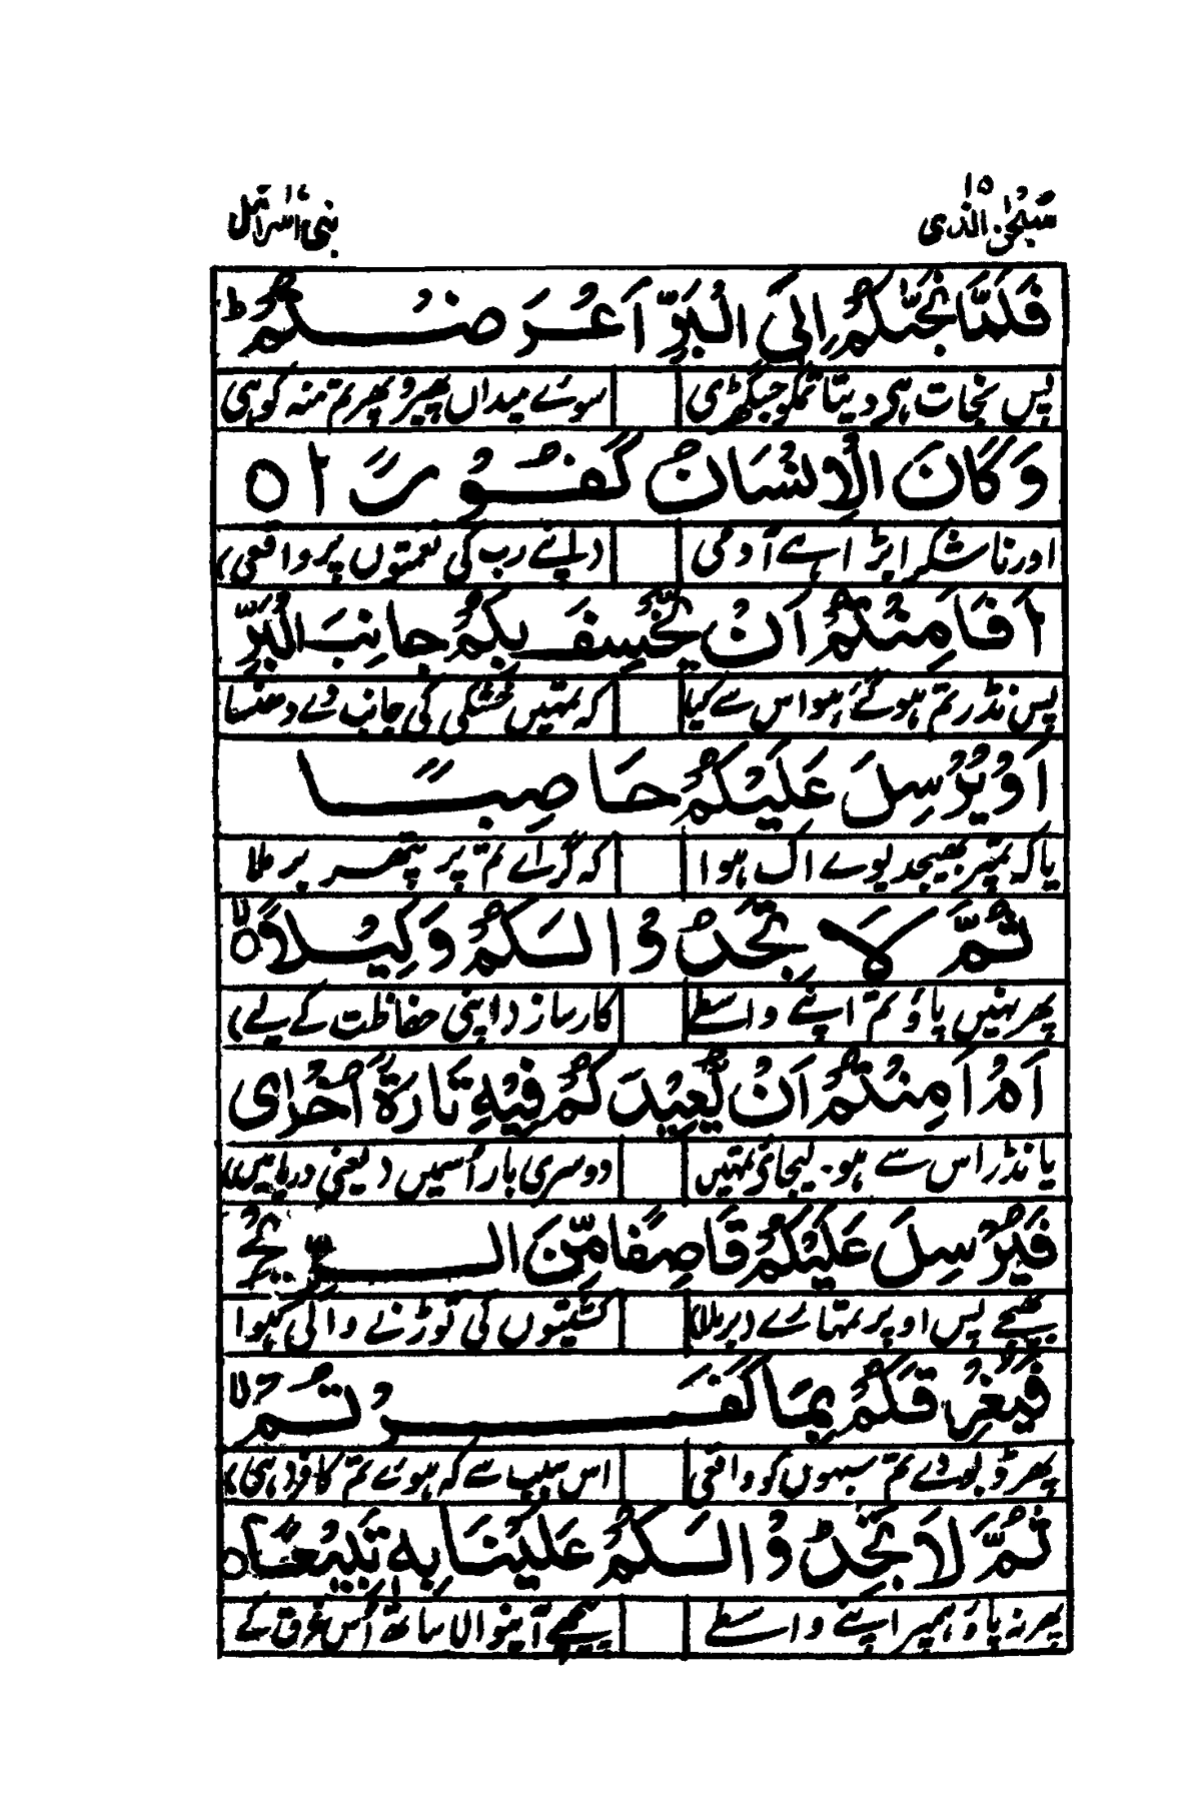 سبحٰن الذی ۱۵
بنی اسرآئیل ۱۷
فَلَمَّا نَجّٰىكُمْ اِلَى الْبَرِّ اَعْرَضْتُمْ ؕ
پس نجات ہی دیتا تمکو جبگھڑی سوئے میداں پھیرو پھر تم منہ کو ہی
وَكَانَ الْاِنْسَانُ كَفُوْرًا ○
اور ناشکرا بڑا ہے آدمی (اپنے رب کی نعمتوں پر واقعی)
اَفَاَمِنْتُمْ اَنْ يَّخْسِفَ بِكُمْ جَانِبَ الْبَرِّ
پس نڈر تم ہو گئے ہو اس سے کیا کہ تمہیں خشکی کی جانب دے دھنسا
اَوْ يُرْسِلَ عَلَيْكُمْ حَاصِبًا
یا کہ تمپر بھیجدیوے اک ہوا کہ گرائے تم پر پتھر برملا
ثُمَّ لَا تَجِدُوْا لَكُمْ وَكِيْلًا ○ۙ
پھر نہیں پاؤ تم اپنے واسطے کارساز (اپنی حفاظت کے لیے)
اَمْ اَمِنْتُمْ اَنْ يُّعِيْدَكُمْ فِيْهِ تَارَةً اُخْرٰى
یا نڈر اس سے ہو۔ لیجائے تمہیں دوسری بار اُسمیں (یعنی دریا میں)
فَيُرْسِلَ عَلَيْكُمْ قَاصِفًا مِّنَ الرِّيْحِ
بھیجے پس اوپر تمہارے (برملا) کشتیوں کی توڑنے والی ہوا
فَيُغْرِقَكُمْ بِمَا كَفَرْتُمْ ۙ
پھر ڈبودے تم سبھوں کو واقعی اس سبب سے کہ ہوئے تم کافر ہی
ثُمَّ لَا تَجِدُوْا لَكُمْ عَلَيْنَا بِهٖ تَبِيْعًا ○
پھر نہ پاؤ ہمپر اپنے واسطے پیچھے آنیوالا ساتھ اُس غرق کے